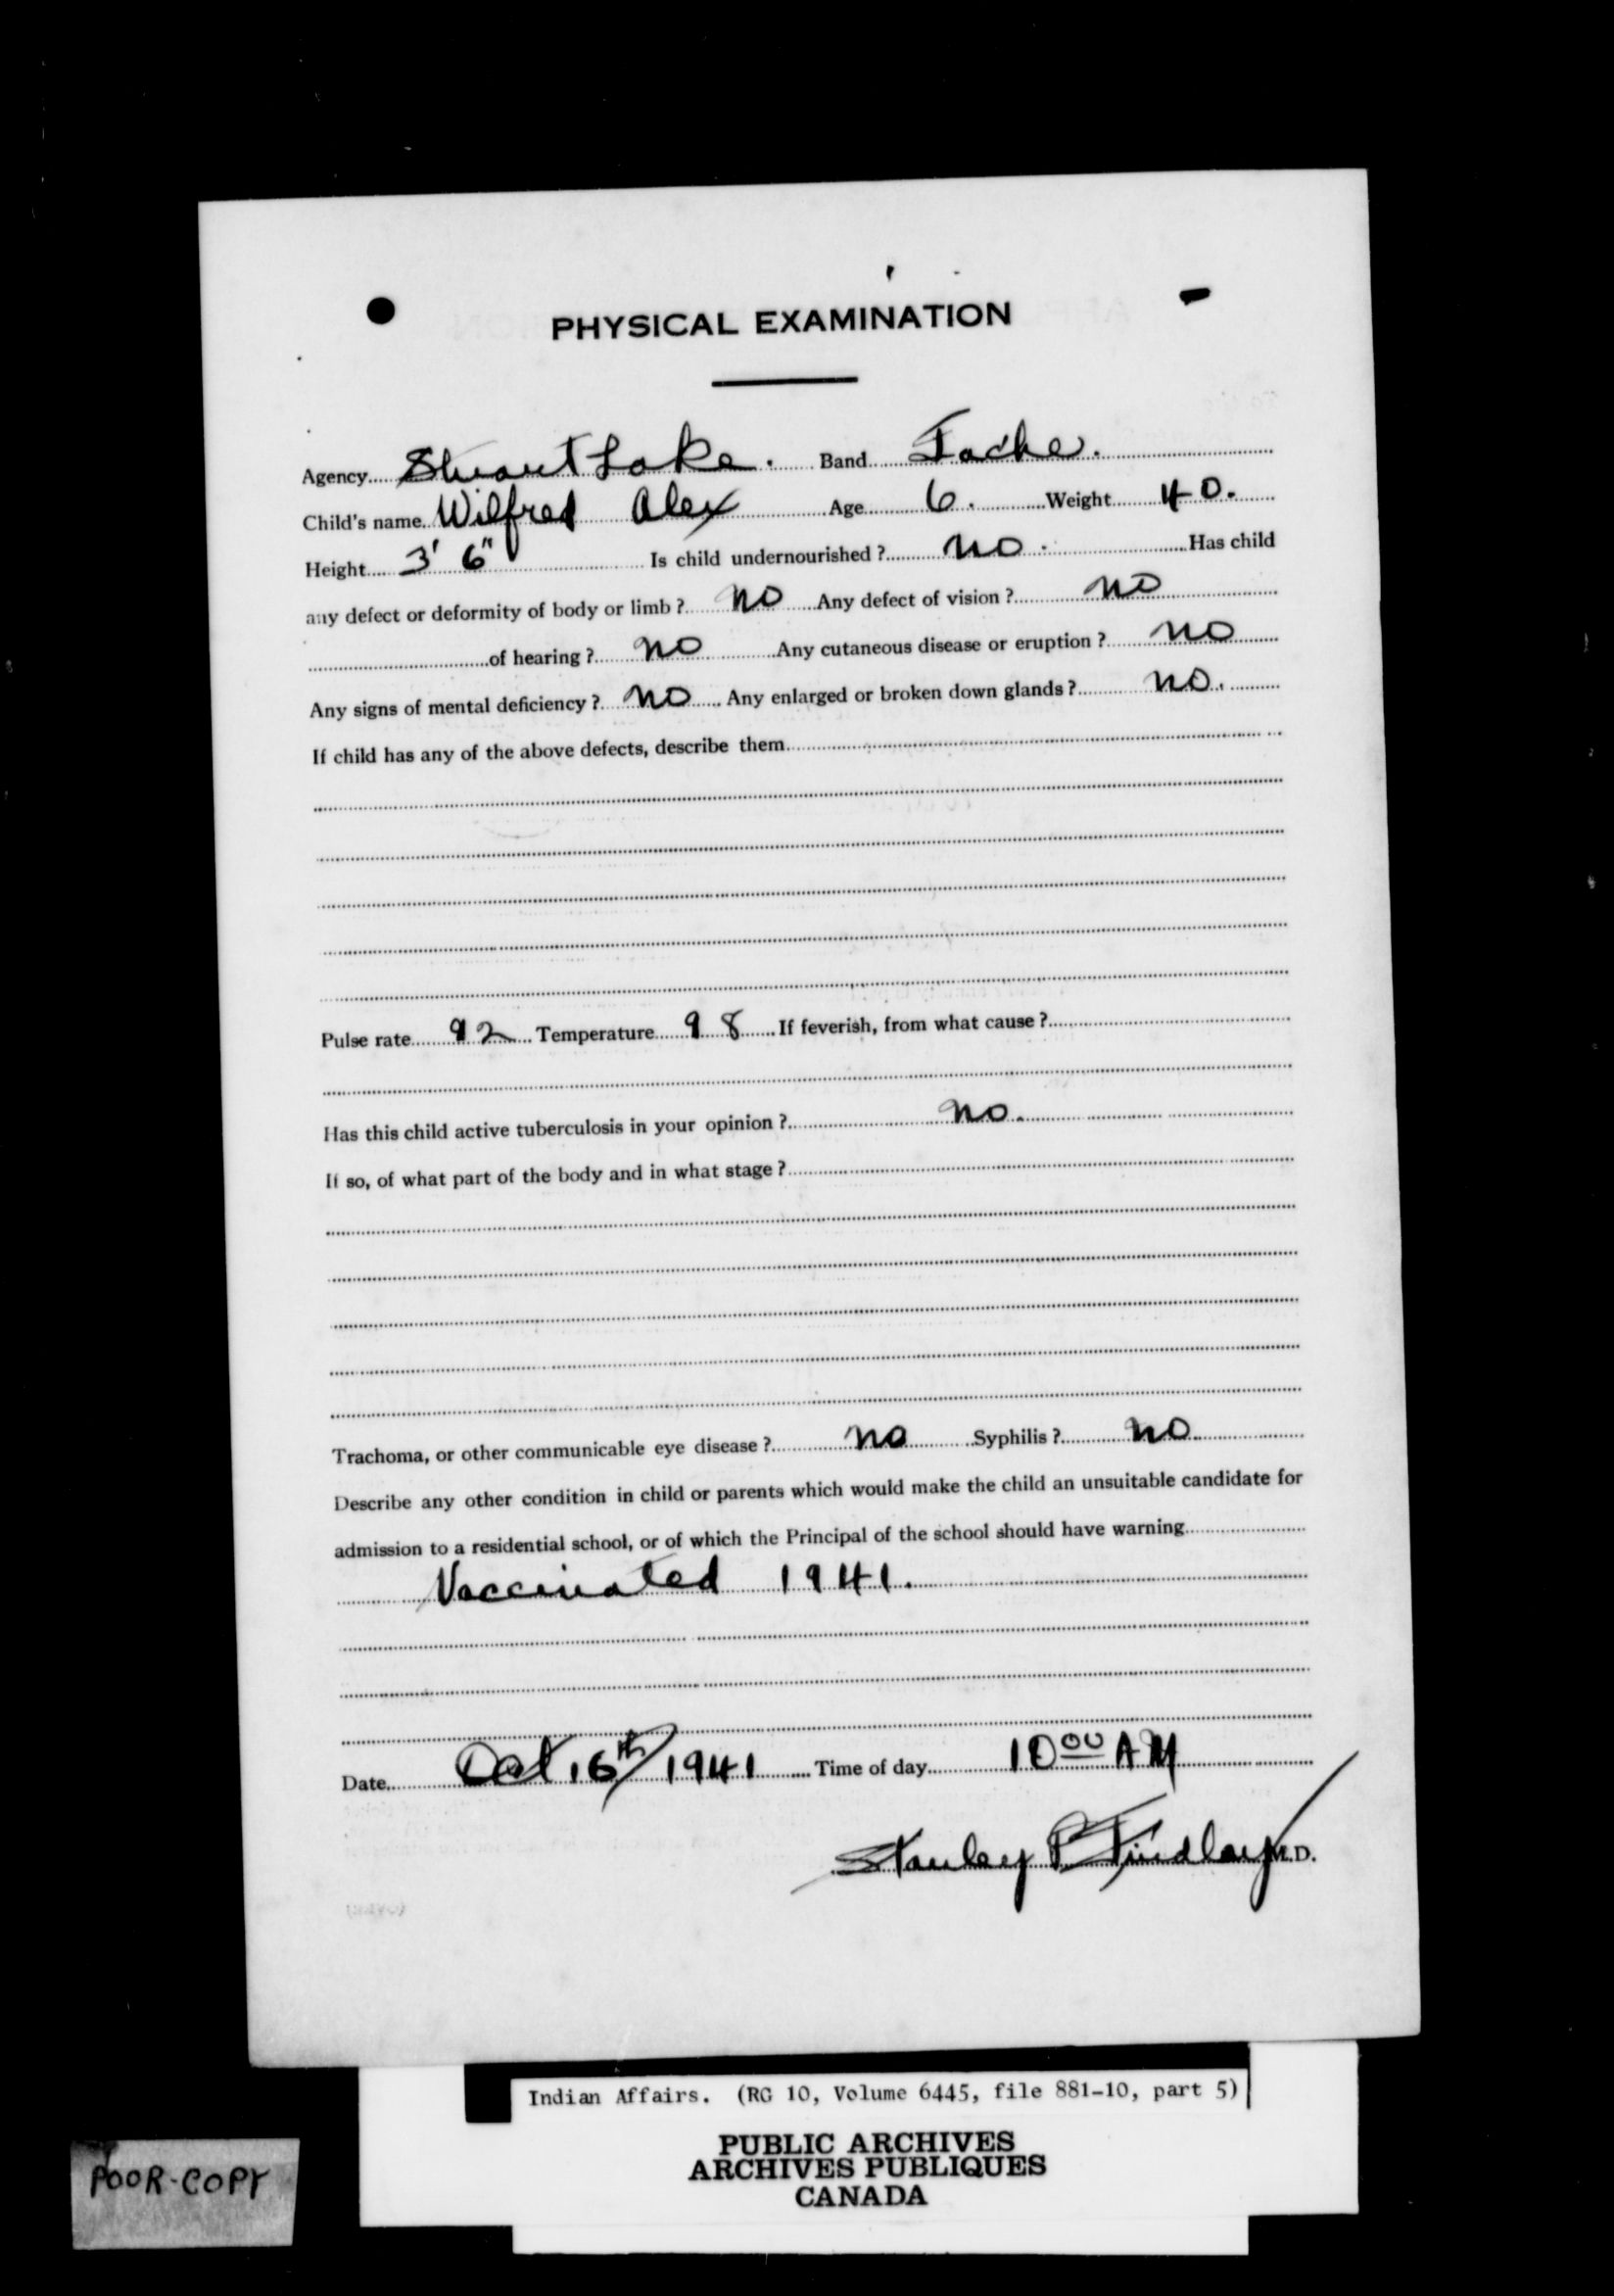 PHYSICAL EXAMINATION
Agency Stuart Lake. Band Tache.
Child's name Wilfred Alex Age 6. Weight 40.
Height 3' 6" Is child undernourished? no. Has child
any defect or deformity of body or limb? no Any defect of vision? no
of hearing? no Any cutaneous disease or eruption? no
Any signs of mental deficiency? no Any enlarged or broken down glands? no.
If child has any of the above defects, describe them
Pulse rate 92 Temperature 98 If feverish, from what cause?
Has this child active tuberculosis in your opinion? no.
If so, of what part of the body and in what stage?
Trachoma, or other communicable eye disease? no Syphilis? no
Describe any other condition in child or parents which would make the child an unsuitable candidate for
admission to a residential school, or of which the Principal of the school should have warning
Vaccinated 1941.
Date Oct 16th/1941 Time of day 10 00 AM
Stanley P Findlay M.D.
Indian Affairs. (RG 10, Volume 6445, file 881-10, part 5)
PUBLIC ARCHIVES
ARCHIVES PUBLIQUES
CANADA
POOR-COPY